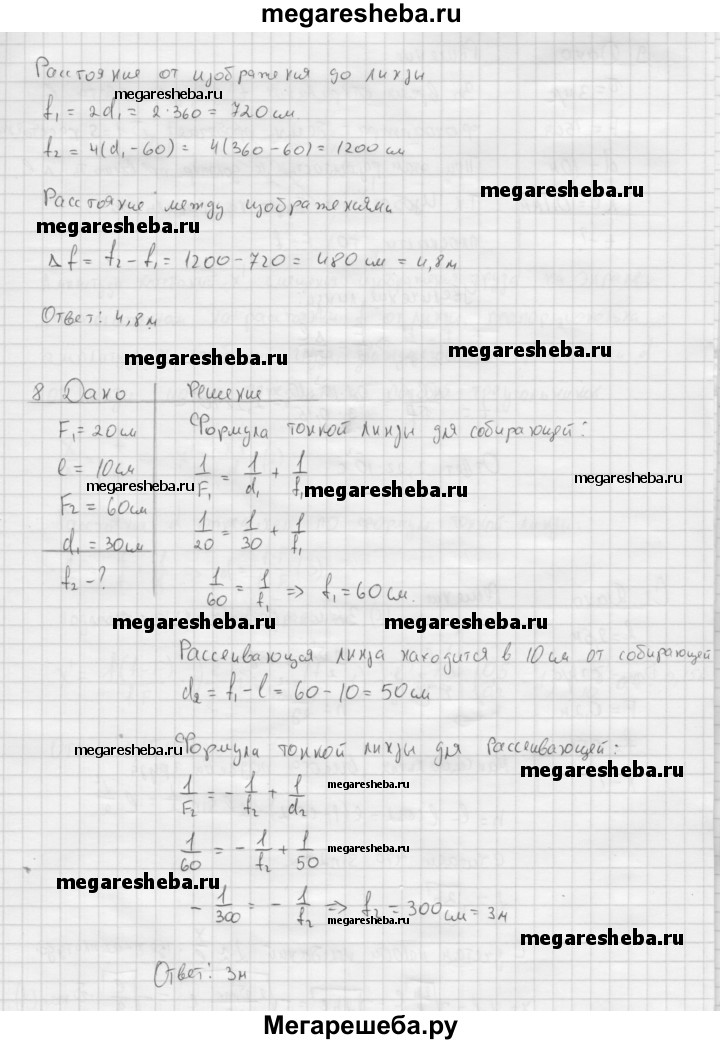 megaresheba.ru
Расстояние от изображения до линзы
megaresheba.ru
f₁ = 2d₁ = 2·360 = 720 см
f₂ = 4(d₁-60) = 4(360-60) = 1200 см
megaresheba.ru
Расстояние между изображениями
megaresheba.ru
Δf = f₂ - f₁ = 1200 - 720 = 480 см = 4,8 м
Ответ: 4,8 м
megaresheba.ru megaresheba.ru
8 Дано Решение
F₁ = 20 см Формула тонкой линзы для собирающей:
l = 10 см 1/F₁ = 1/d₁ + 1/f₁
megaresheba.ru megaresheba.ru megaresheba.ru
F₂ = 60 см
d₁ = 30 см 1/20 = 1/30 + 1/f₁
f₂ - ? 1/60 = 1/f₁ => f₁ = 60 см.
megaresheba.ru megaresheba.ru
Рассеивающая линза находится в 10 см от собирающей
d₂ = f₁ - l = 60 - 10 = 50 см
megaresheba.ru Формула тонкой линзы для рассеивающей:
megaresheba.ru
1/F₂ = - 1/f₂ + 1/d₂ megaresheba.ru
1/60 = - 1/f₂ + 1/50 megaresheba.ru
megaresheba.ru
- 1/300 = - 1/f₂ => f₂ = 300 см = 3м
megaresheba.ru
megaresheba.ru
Ответ: 3м
Мегарешеба.ру